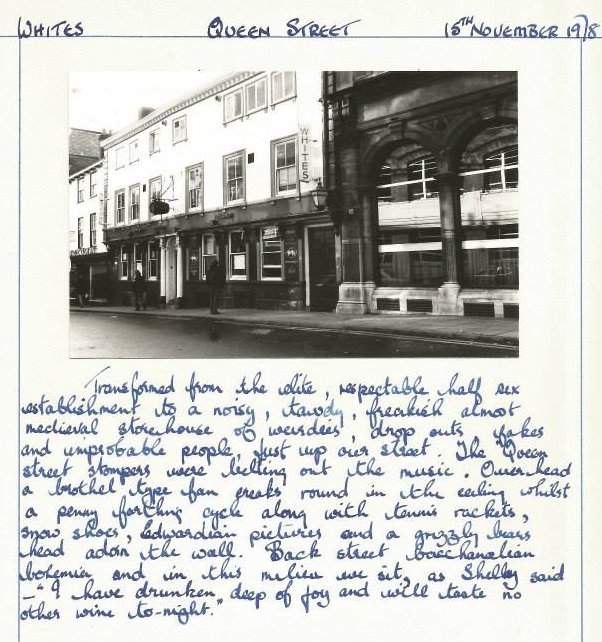 WHITES QUEEN STREET 15TH NOVEMBER 1978
WHITES
Transformed from the elite, respectable half sex
establishment to a noisy, tawdy, freakish almost
medieval storehouse of weirdees, drop outs, fakes
and improbable people, just up our street. The "Queen
street stompers were belting out the music. Overhead
a brothel type fan creaks round in the ceiling whilst
a penny farthing cycle along with tennis rackets,
snow shoes, Edwardian pictures and a grizzly bears
head adorn the wall. Back street bacchanalian
bohemia and in this milieu we sit, as Shelley said
– "I have drunken deep of joy and will taste no
other wine to-night."